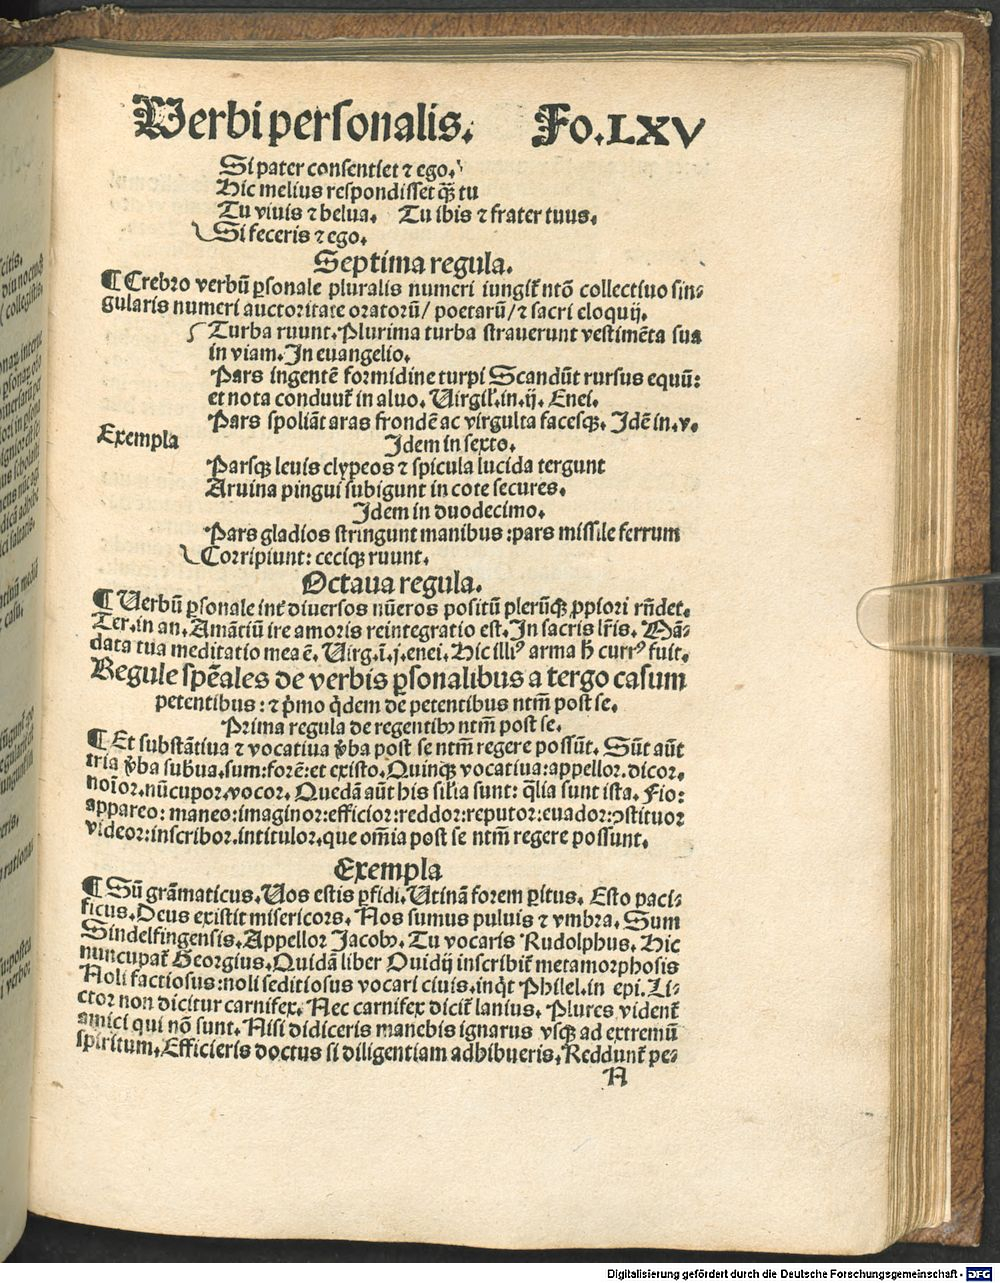 Verbi personalis. Fo. LXV
Si pater consentiet ⁊ ego.
Hic melius respondisset q̄ꝫ tu
Tu viuis ⁊ belua. Tu ibis ⁊ frater tuus.
Si feceris ⁊ ego.
Septima regula.
¶ Crebro verbū ꝑsonale pluralis numeri iungit̄ nōi collectiuo sin⸗
gularis numeri auctoritate oratorū/ poetarū/ ⁊ sacri eloquij.
Turba ruunt. Plurima turba strauerunt vestimēta sua
in viam. In euangelio.
Pars ingentē formidine turpi Scandūt rursus equū:
et nota conduut̄ in aluo. Virgil̓. in. ij. Enei.
Pars spoliāt aras frondē ac virgulta facesqꝫ. Idē in. v.
Exempla
Idem in sexto.
Parsqꝫ leuis clypeos ⁊ spicula lucida tergunt
Aruina pingui subigunt in cote secures.
Idem in duodecimo.
Pars gladios stringunt manibus: pars missile ferrum
Corripiunt: cecique ruunt.
Octaua regula.
¶ Verbū ꝑsonale int̄ diuersos nūeros positū plerūqꝫ ꝓpiori rn̄det.
Ter. in an. Amātiū ire amoris reintegratio est. In sacris lr̄is. Mā⸗
data tua meditatio mea ē. Virg. ī. j. enei. Hic illiꝰ arma h̄ currꝰ fuit.
Regule spēales de verbis ꝑsonalibus a tergo casum
petentibus: ⁊ p̄mo q̄dem de petentibus ntm̄ post se.
Prima regula de regentibꝰ ntm̄ post se.
¶ Et substātiua ⁊ vocatiua v̄ba post se ntm̄ regere possūt. Sūt aūt
tria v̄ba subūa. sum: forē: et existo. Quinqꝫ vocatiua: appellor. dicor.
noīor. nūcupor. vocor. Quedā aūt his silia sunt: q̄lia sunt ista. Fio:
appareo: maneo: imaginor: efficior: reddor: reputor: euador: ꝯstituor
videor: inscribor. intitulor. que om̄ia post se ntm̄ regere possunt.
Exempla
¶ Sū grāmaticus. Vos estis ꝑfidi. Vtinā forem ꝑitus. Esto paci⸗
ficus. Deus existit misericors. Nos sumus puluis ⁊ vmbra. Sum
Sindelfingensis. Appellor Jacobꝰ. Tu vocaris Rudolphus. Hic
nuncupat̄ Georgius. Quidā liber Ouidij inscribit̄ metamorphosis
Noli factiosus: noli seditiosus vocari ciuis. inq̇t Philel. in epi. Li⸗
ctor non dicitur carnifex. Nec carnifex dicit̄ lanius. Plures vident̄
amici qui nō sunt. Nisi didiceris manebis ignarus vsqꝫ ad extremū
spiritum. Efficieris doctus si diligentiam adhibueris. Reddunt̄ pe⸗
N
Digitalisierung gefördert durch die Deutsche Forschungsgemeinschaft - DFG